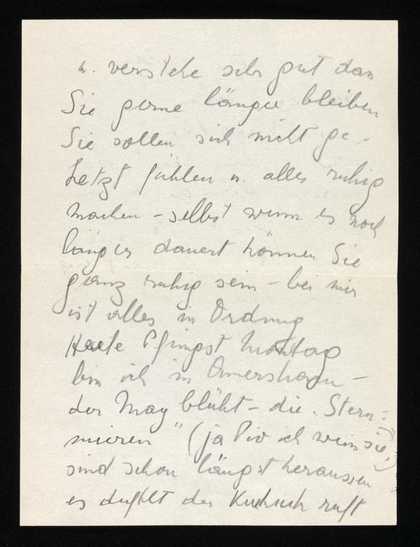 u. verstehe sehr gut dass
Sie gerne länger bleiben
Sie sollen sich nicht ge-
hetzt fühlen u. alles ruhig
machen – selbst wenn es noch
länger dauert können Sie
ganz ruhig sein – bei mir
ist alles in Ordnung
Heute Pfingst Montag
bin ich in Amersham –
der May blüht – die "Stern-
mieren" (ja ich weiss sie)
sind schon längst heraussen
es duftet der Kuckuck ruft